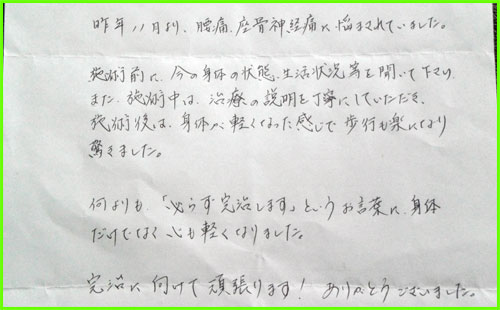 昨年11月より、腰痛、座骨神経痛に悩まされていました。
施術前に、今の身体の状態、生活状況等を聞いて下さり
また、施術中は、治療の説明を丁寧にしていただき、
施術後は、身体が軽くなった感じで歩行も楽になり
驚きました。
何よりも、「必らず完治します」というお言葉に、身体
だけではなく心も軽くなりました。
完治に向けて頑張ります! ありがとうございました。